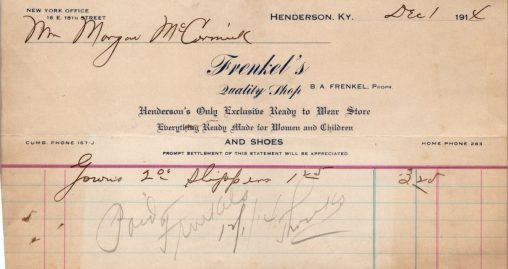 NEW YORK OFFICE
16 E. 18TH STREET
HENDERSON, KY. Dec 1 1914
Mrs Morgan McCormick
Frenkel's
Quality Shop B. A. FRENKEL, PROPR.
Henderson's Only Exclusive Ready to Wear Store
Everything Ready Made for Women and Children
CUMB. PHONE 157-J AND SHOES HOME PHONE 263
PROMPT SETTLEMENT OF THIS STATEMENT WILL BE APPRECIATED
Gowns 2 00 Slippers 1 25 3 25
Paid
Frenkels
12/1/14 Thanks